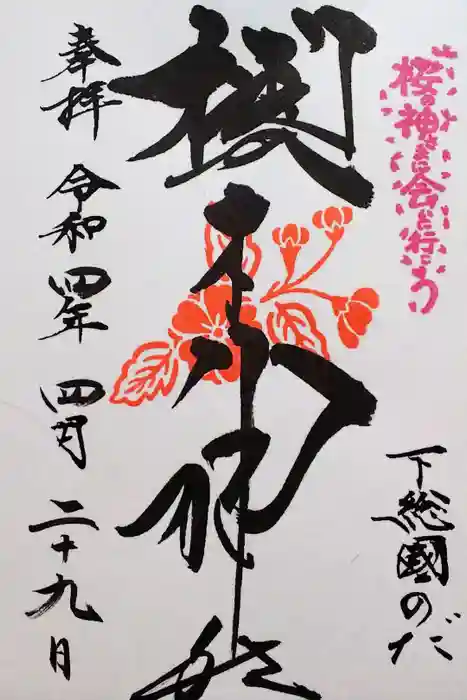 桜の神さまに会いに行こう
下総國のだ
櫻
奉拝 令和四年 四月 二十九日